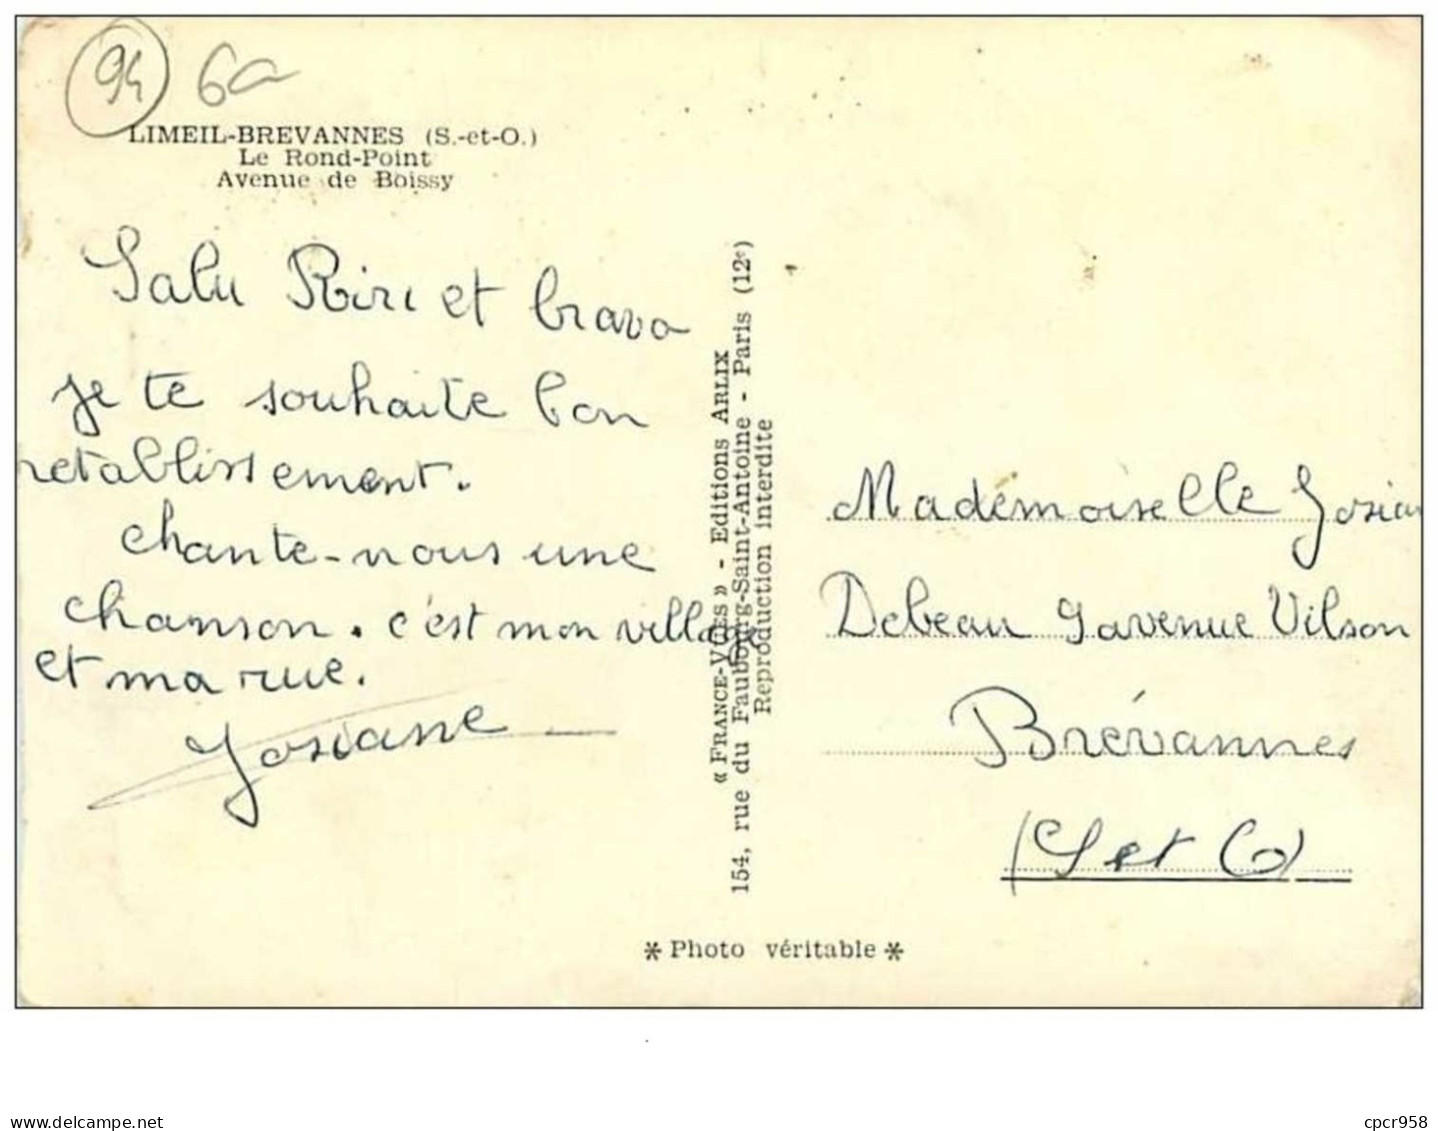 94 6
LIMEIL-BREVANNES (S.-et-O.)
Le Rond-Point
Avenue de Boissy
Salu Riri et bravo
je te souhaite bon
retablissement.
chante-nous une
chanson. c'est mon village
et ma rue.
Josiane
« FRANCE-VUES » - Editions ARLIX
154, rue du Faubourg-Saint-Antoine - Paris (12e)
Reproduction interdite
Mademoiselle Josian
Debeau 9 avenue Vilson
Brévannes
(S et O)
* Photo véritable *
delcampe.net
cpcr958